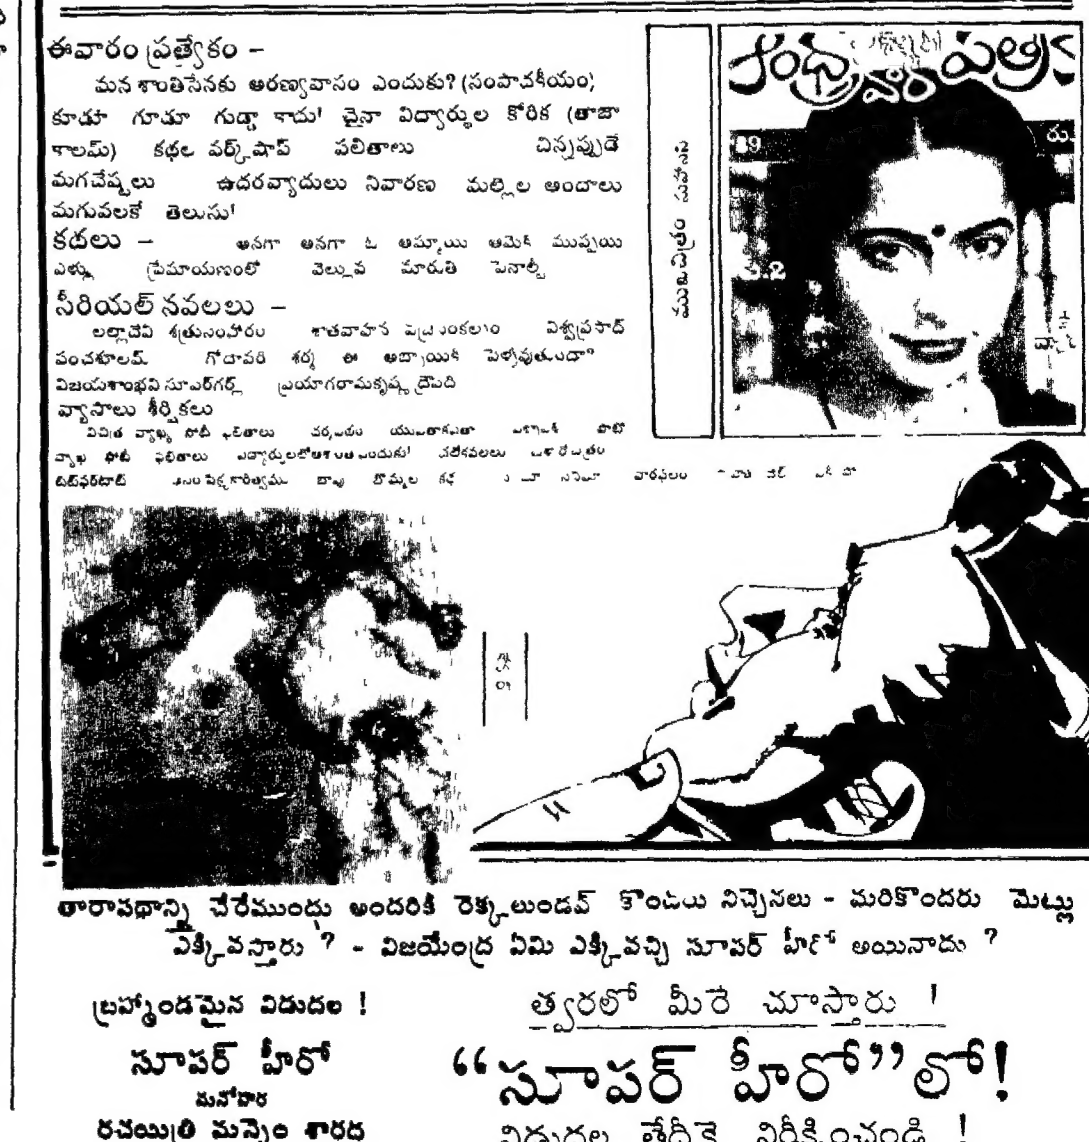 ఈవారం ప్రత్యేకం -
మన శాంతిసేనకు అరణ్యవాసం ఎందుకు? (సంపాదకీయం)
కూడూ గూడూ గుడ్డా కాదు! చైనా విద్యార్థుల కోరిక (తాజా
కాలమ్) కథల వర్క్‌షాప్ ఫలితాలు చిన్నప్పుడే
మగచేష్టలు ఉదరవ్యాధులు నివారణ మల్లెల అందాలు
మగువలకే తెలుసు!
కథలు - అనగా అనగా ఓ అమ్మాయి ఆమెకి ముప్పయి
ఎళ్ళు ప్రేమాయణంలో వెల్లువ మారుతి పెనాల్టీ
సీరియల్ నవలలు -
లల్లాదేవి శత్రుసంహారం శాతవాహన విశ్వప్రసాద్
పంచశూలమ్ గోదావరి శర్మ ఈ అబ్బాయికి పెళ్ళవుతుందా?
విజయశాంభవి సూపర్‌గర్ల్ ప్రయాగరామకృష్ణ ద్రౌపది
వ్యాసాలు శీర్షికలు
విచిత్ర వ్యాఖ్య పోటీ ఫలితాలు ఫొటో
వ్యాఖ్య పోటీ ఫలితాలు
టిట్‌ఫర్‌టాట్ బాపు బొమ్మల కథ వారఫలం
ఆంధ్ర వార పత్రిక
ముఖచిత్రం సుహాసిని
తారాపథాన్ని చేరేముందు అందరికీ రెక్కలుండవ్ కొందరు నిచ్చెనలు - మరికొందరు మెట్లు
ఎక్కివస్తారు ? - విజయేంద్ర ఏమి ఎక్కివచ్చి సూపర్ హీరో అయినాడు ?
బ్రహ్మాండమైన విడుదల !
సూపర్ హీరో
మనోహర
రచయిత్రి మన్నెం శారద
త్వరలో మీరే చూస్తారు !
“సూపర్ హీరో”లో!
విడుదల తేదీకై నిరీక్షించండి !